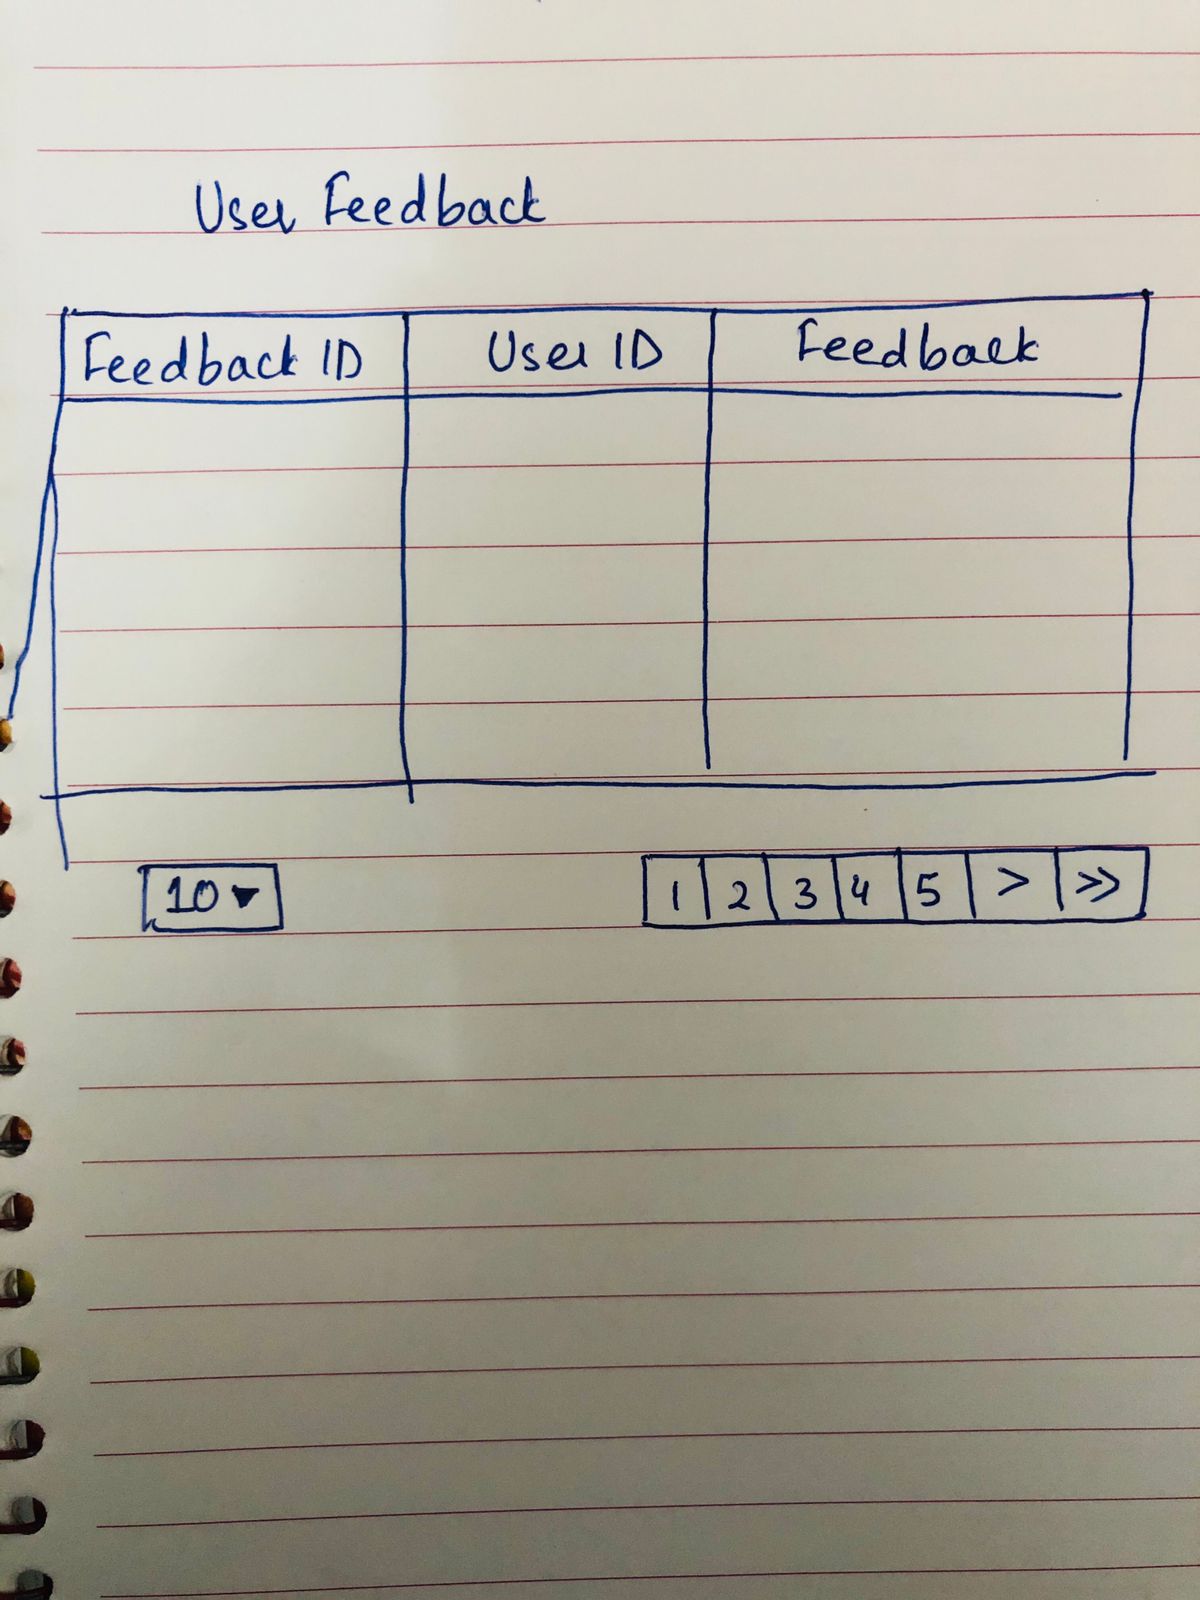 User Feedback
Feedback ID User ID Feedback
10 ▼ 1 2 3 4 5 > >>